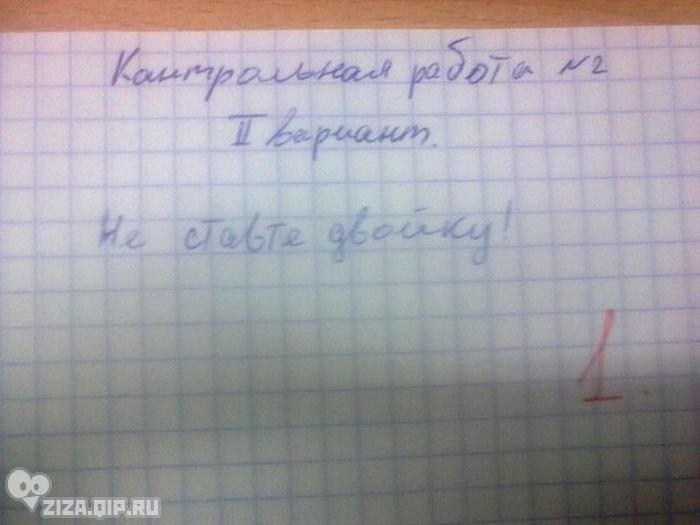 Кантрольная работа №2
II вариант.
Не ставте двойку!
1.
ZIZA.QIP.RU